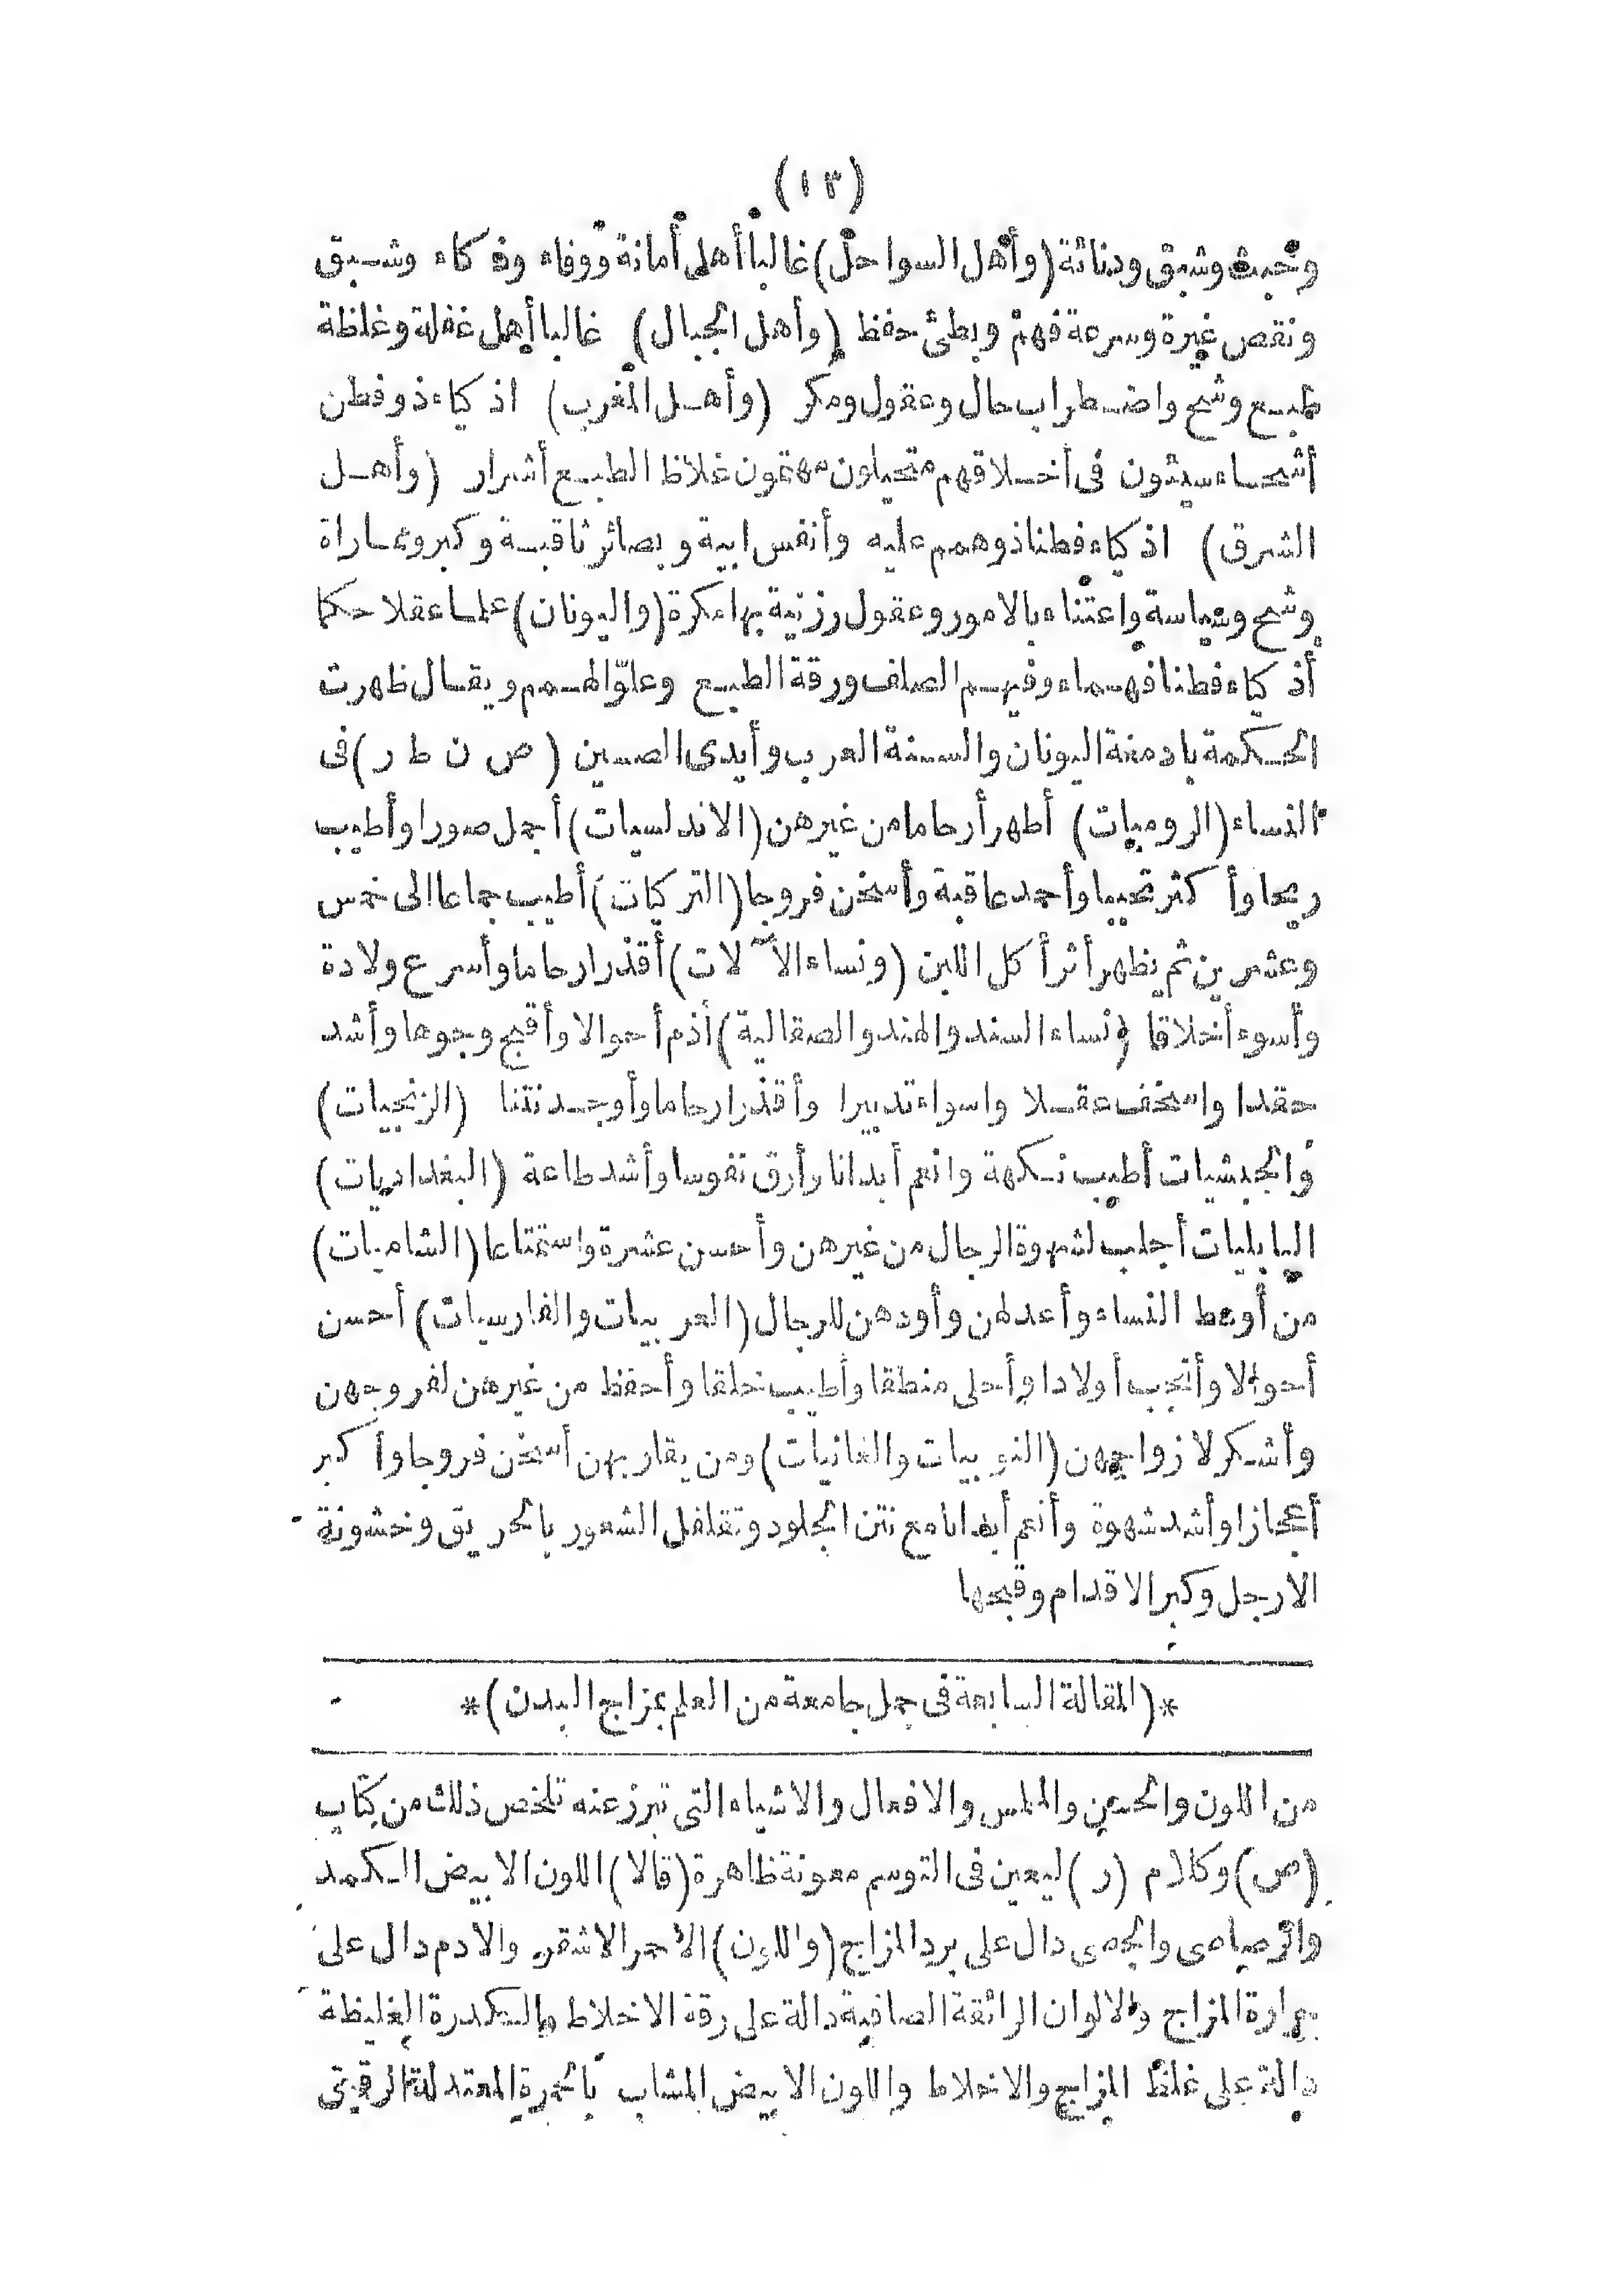 (١٣)
وخبث وشبق ودناثة (وأهل السواحل) غالبا أهل أمانة ووفاء وذكاء وشبق
ونقص غيرة وسرعة فهم وبطئ حفظ (وأهل الجبال) غالبا أهل غفلة وغلظة
طبع وشح واضطراب حال وعقول ومكر (وأهل المغرب) اذكياء ذو فطن
أشحاء سيئون فى أخلاقهم متحيلون مهتمون غلاظ الطبع أشرار (وأهل
الشرق) اذكياء فطنا ذو همم عليه وأنفس ابية وبصائر ثاقبة وكبر ومماراة
وشح وسياسة واعتناء بالامور وعقول رزنية بها مكرة (واليونان) علماء عقلا حكما
أذكياء فطنا فهماء وفيهم الصلف ورقة الطبع وعلوّ الهمم ويقال ظهرت
الحكمة بادمغة اليونان والسنة العرب وأيدى الصين (ص ن ط ر) فى
النساء (الروميات) أطهر أرحاما من غيرهن (الاندلسيات) أجمل صورا وأطيب
ريحا وأكثر تحببا وأحمد عاقبة وأسخن فروجا (التركيات) أطيب جماعا الى خمس
وعشرين ثم يظهر أثر أكل اللبن (ونساء الآلات) أقذر ارحاما وأسرع ولادة
وأسوء أخلاقا (ونساء السند والهند والصقالية) أذم أحوالا وأقبح وجوها وأشد
حقدا واسخف عقلا واسواء تدبيرا وأقذر ارحاما وأوجد نتنا (الزنجيات)
والحبشيات أطيب نكهة وانعم أبدانا وأرق نفوسا وأشد طاعة (البغداديات)
البابليات أجلب لشهوة الرجال من غيرهن وأحسن عشرة واستمتاعا (الشاميات)
من أوسط النساء وأعدلهن وأودهن للرجال (العربيات والفارسيات) أحسن
أحوالا وأنجب أولادا وأحلى منطقا وأطيب خلقا وأحفظ من غيرهن لفروجهن
وأشكر لازواجهن (النوبيات والغانيات) ومن يقاربهن أسخن فروجا وأكبر
أعجازا وأشد شهوة وأنعم أبدانا مع نتن الجلود وتقلفل الشعور بالحريق وخشونة
الارجل وكبر الاقدام وقبحها
*(المقالة السابعة فى جمل جامعة من العلم بمزاج البدن)*
من اللون والحسن والملمس والافعال والاشياء التى تبرز عنه تلخص ذلك من كتاب
(ص) وكلام (ر) ليعين فى التوسم معونة ظاهرة (قالا) اللون الابيض الكمد
والرصاصى والجصى دال على برد المزاج (واللون) الأحمر الاشقر والادم دال على
حرارة المزاج والالوان الرائقة الصافية دالة على رقة الاخلاط والكدرة الغليظة
دالة على غلظ المزاج والاخلاط واللون الابيض المشاب بالحمرة المعتدلة الرقيق